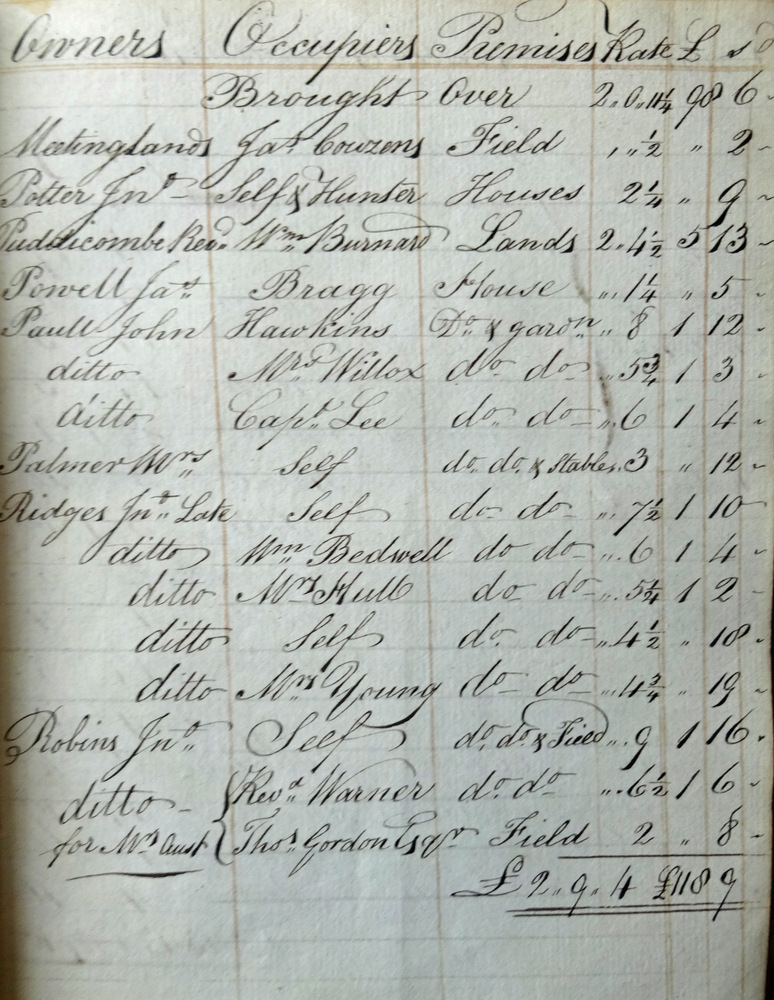 Owners Occupiers Premises Rate £ s d
Brought Over 2,,0,,11¼ 98 6 -
Meetinglands Jas. Cowzens Field ,,,,½ ,, 2 -
Potter Jno. - Self & Hunter Houses 2¼ ,, 9 -
Puddicombe Revd. Wm. Burnard Lands 2,,4½ 5 13 -
Powell Jas. Bragg House ,,,1¼ ,, 5 -
Paull John Hawkins Do. & gardn. ,, 8 1 12 -
ditto Mrs. Willox do. do. ,,5¾ 1 3 -
ditto Capt. Lee do. do. - ,,6 1 4 -
Palmer Mrs. Self do. do. & Stables.. 3 ,, 12 -
Ridges Jno. Late Self do. do. - ,,,7½ 1 10 -
ditto Wm. Bedwell do do - ,,,6 1 4 -
ditto Mrs. Hull do do - ,,,5¼ 1 2 -
ditto Self do. do - ,,,4½ ,, 18 -
ditto Mrs. Young do - do - ,,,4¾ ,, 19 -
Robins Jno. Self do. do. & Field ,,,9 1 16 -
ditto - Revd. Warner do. do ,,,6½ 1 6 -
for Mrs Aust Thos. Gordon Esqr. Field 2 ,, 8 -
£ 2,,9,,4 £118 9